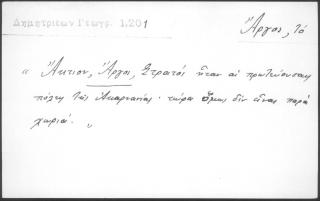 Δημητριέων Γεωγρ. 1,201
Ἄργος, τό
« Ἄκτιον, Ἄργος, Στρατός ἦταν αἱ πρωτεύουσαι
πόλεις τῆς Ἀκαρνανίας· τώρα ὅμως δὲν εἶναι παρὰ
χωριά. »